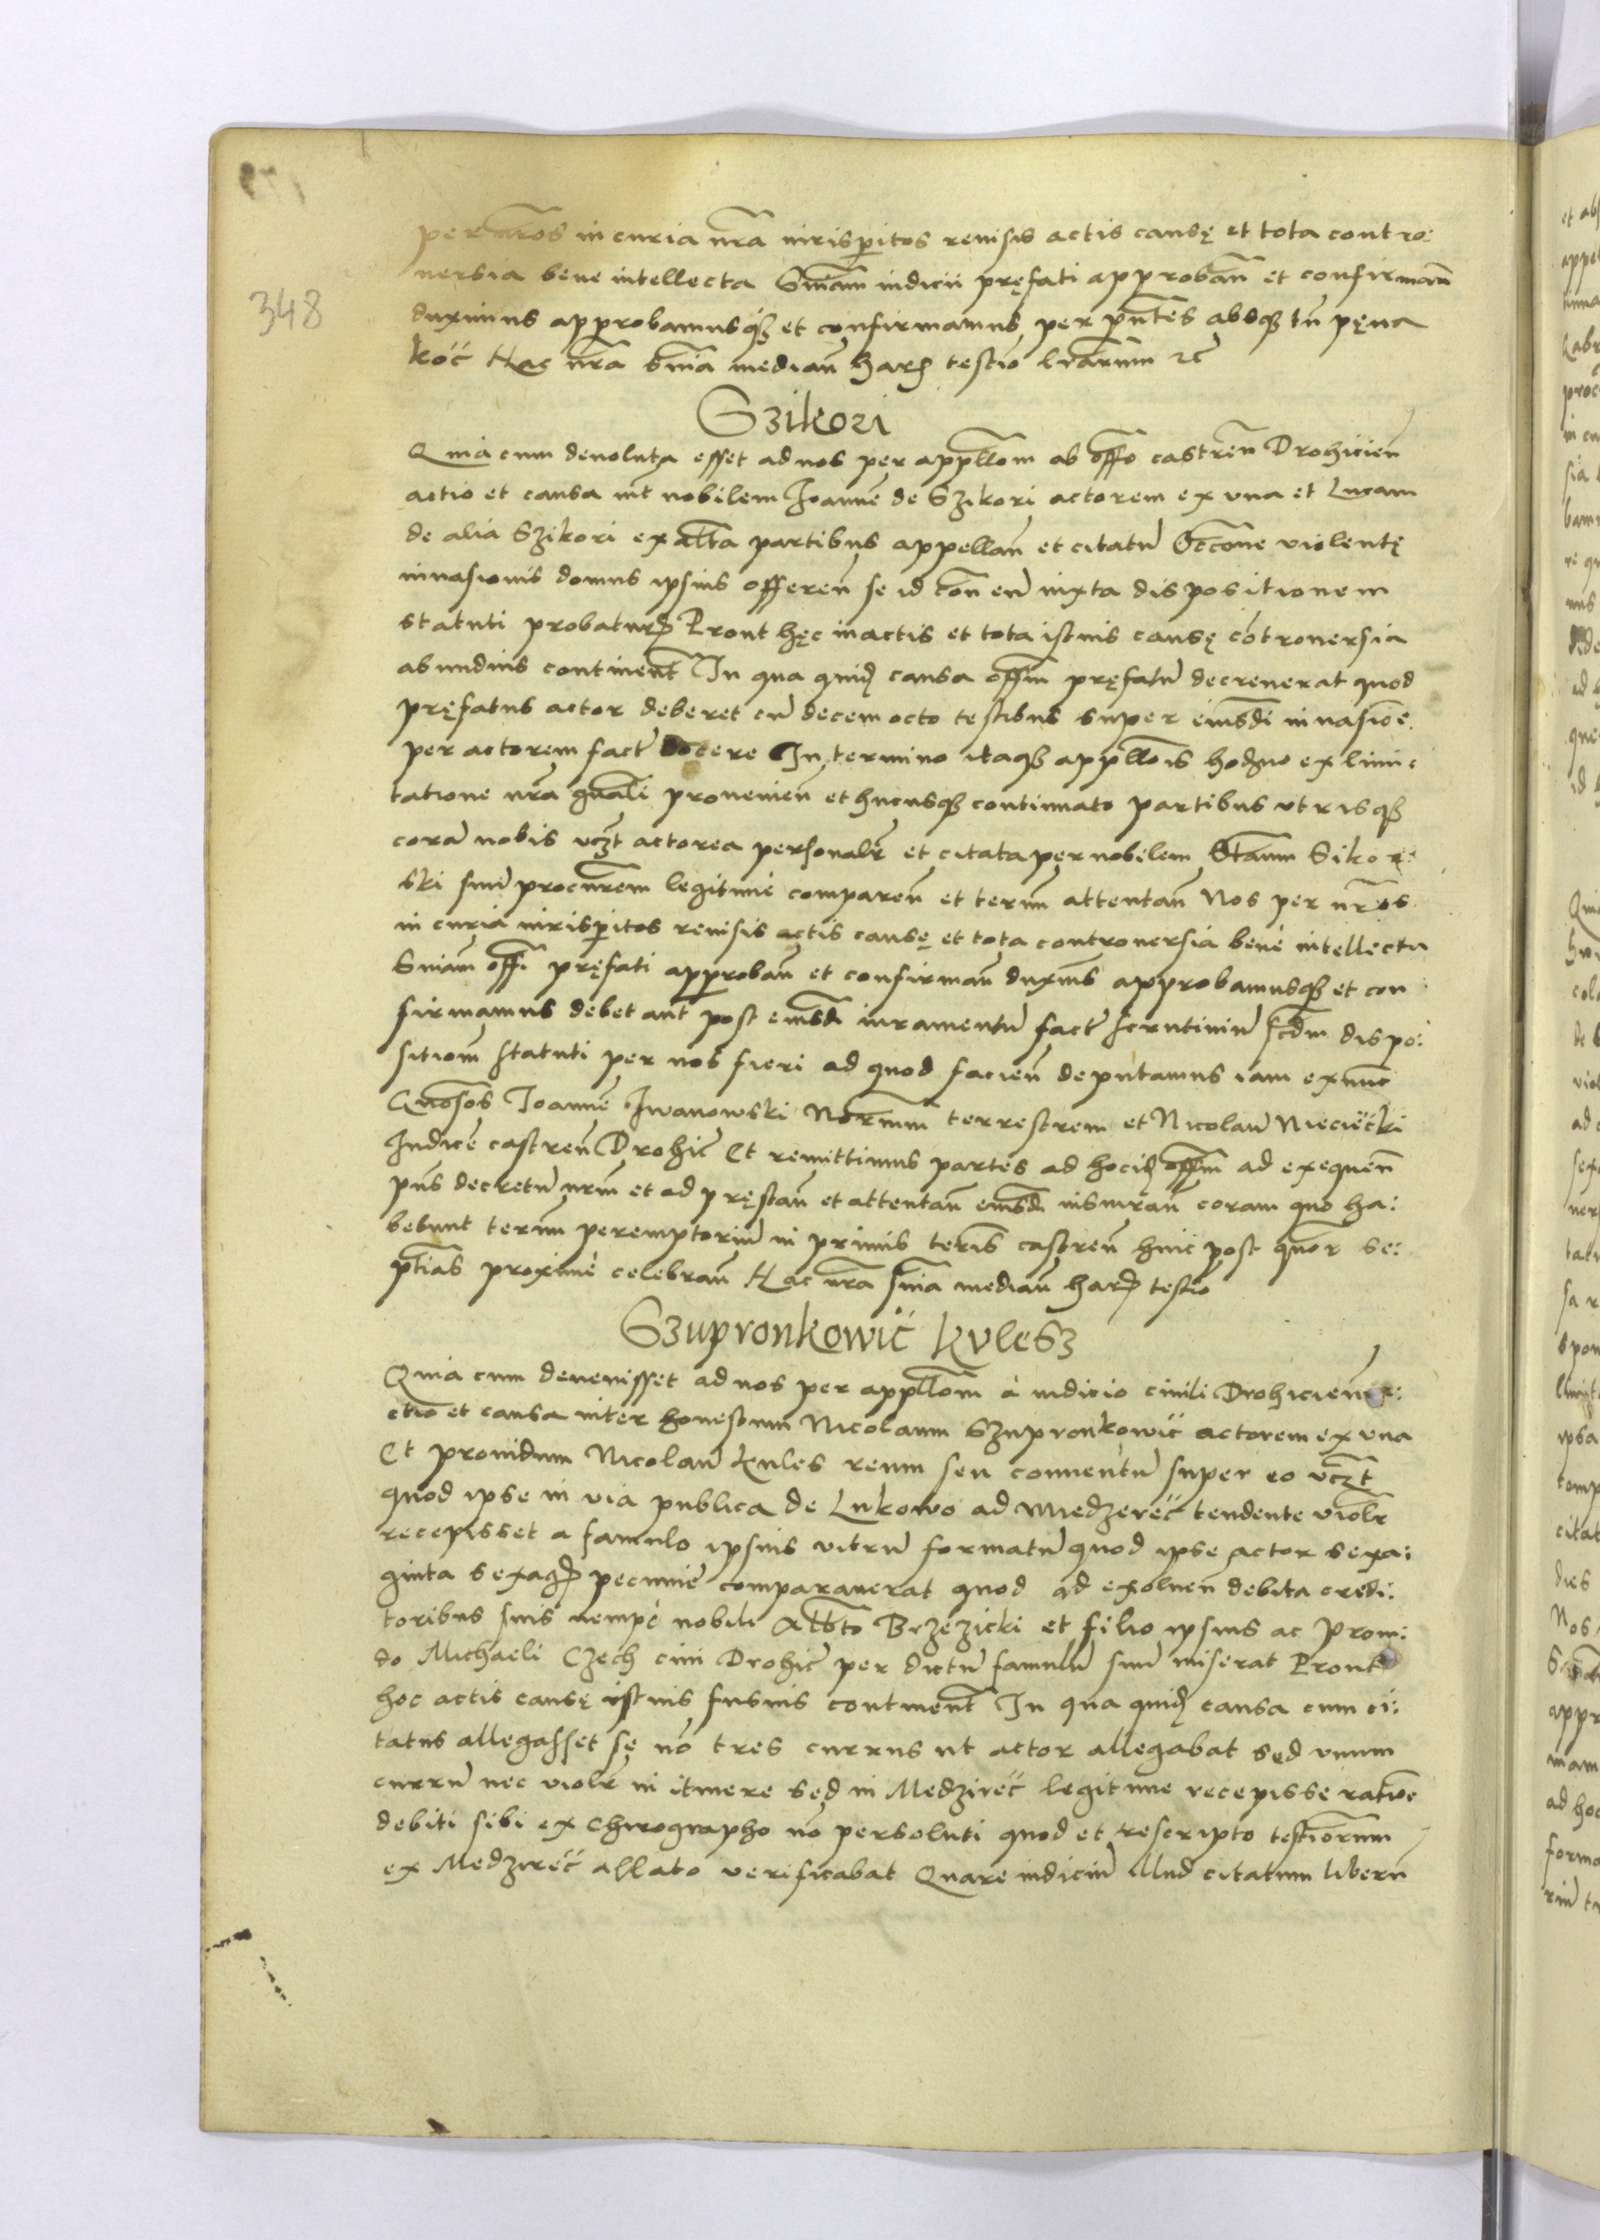 348
per nros in curia nra iurisperitos reuisis actis causę et tota contro:
uersia bene intellecta Sniam iudicii pręfati approban et confirman
duximus approbamusq et confirmamus per pntes absq tn pęna
koć Hac nra snia median harum testio lrarum etc
Szikori
Quia cum deuoluta esset ad nos per appllom ab offo castren Drohicien
actio et causa int nobilem Joanne de Szikori actorem ex una et Lucam
de alia Szikori ex altra partibus appellan et citatu occone violentę
inuasionis domus ipsius offeren se id con eu iuxta dispositionem
statuti probaturum Prout hęc in actis et tota istius causę cotrouersia
abundius continent In qua quid causa offm pręfatu decreuerat quod
pręfatus actor deberet cu decem octo testibus super eiusdi inuasioe
per actorem fact docere In termino itaq appllois hodno ex limi:
tatione nra gnali prouenien et hucusq continuato partibus utrisq
cora nobis uczt actorea personalr et citata per nobilem Stanm Sikor:
ski suu procurem legitime comparen et termm attentan Nos per nros
in curia iurisperitos reuisis actis causę et tota controuersia bene intellecta
Sniam offi pręfati approban et confirman duxims approbamusq et con
firmamus debet aut post eiusdi iuramentu fact scrutiniu scdm dispo:
sitiom statuti per nos fieri ad quod facien deputamus iam exnunc
Gnosos Joanne Iwanowski Notrium terrestrem et Nicolau Nieciećki
Judice castren Drohic Et remittimus partes ad hocid offm ad exequen
pns decretu nrm et ad pręstan et attentan eiusdi iusiuran coram quo ha:
bebunt termm peremptoriu in primis teris castren hinc post quor se:
ptias proxime celebran Hac nra snia median harum testio
Szupronkowić kulesz
Quia cum deuenisset ad nos per appllom à iudicio ciuili Drohicien a:
ctio et causa inter honestum Nicolaum Szupronkowić actorem ex una
Et prouidum Nicolau Kules reum seu conuentu super eo uczt
quod ipse in via publica de Lukowo ad Miedzereć tendente violr
recepisset a famulo ipsius vitru formatu quod ipse actor sexa:
ginta sexag pecunie comparauerat quod ad exoluen debita credi:
toribus suis nempè nobili Albto Brzezicki et filio ipsius ac proui:
do Michaeli Czech ciui Drohic per dictu famulu suu miserat Prout
hoc actis causę istius fusius continent In qua quid causa cum ci:
tatus allegasset sę no tres currus ut actor allegabat sed unum
curru nec violr in itinere sed in Medzireć legitime recepisse ratioe
debiti sibi ex chirographo no persoluti quod et rescripto testiorum
ex Medzireć allato verificabat Quare iudiciu illud citatum liberu